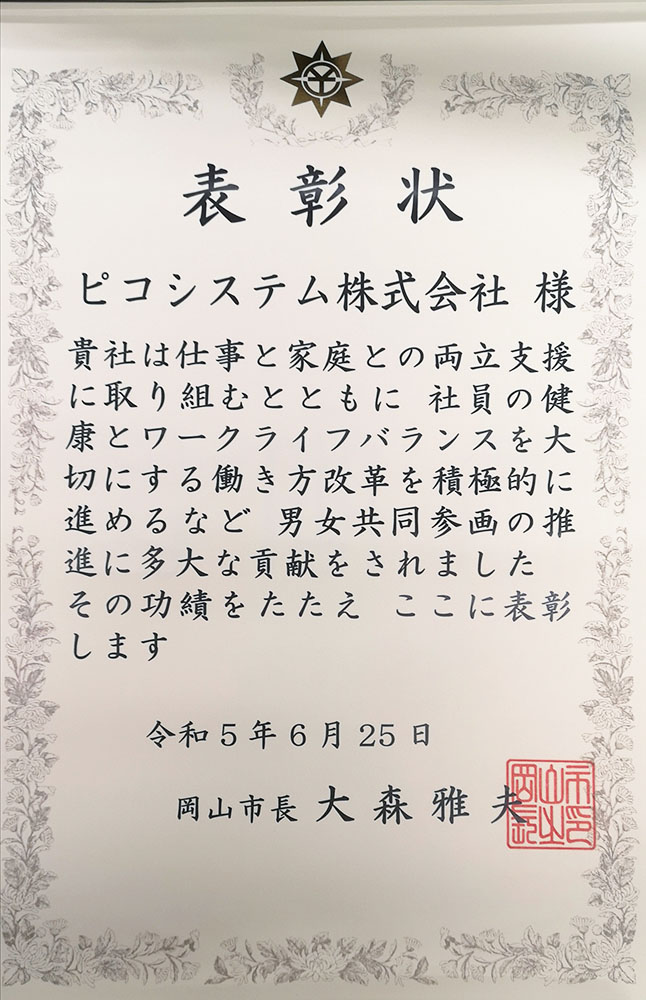 表彰状
ピコシステム株式会社 様
貴社は仕事と家庭との両立支援
に取り組むとともに 社員の健
康とワークライフバランスを大
切にする働き方改革を積極的に
進めるなど 男女共同参画の推
進に多大な貢献をされました
その功績をたたえ ここに表彰
します
令和5年6月25日
岡山市長 大森雅夫